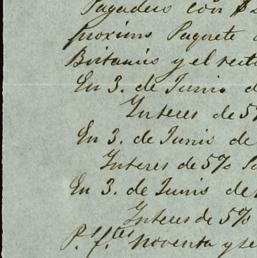 Pagadero con $
proximo Paquete
Britanico y el rest
En 3. de Junio d
Interes de 5%
En 3. de Junio de
Interes de 5% S
En 3. de Junio de
Interes de 5%
P. f.tes noventa y se